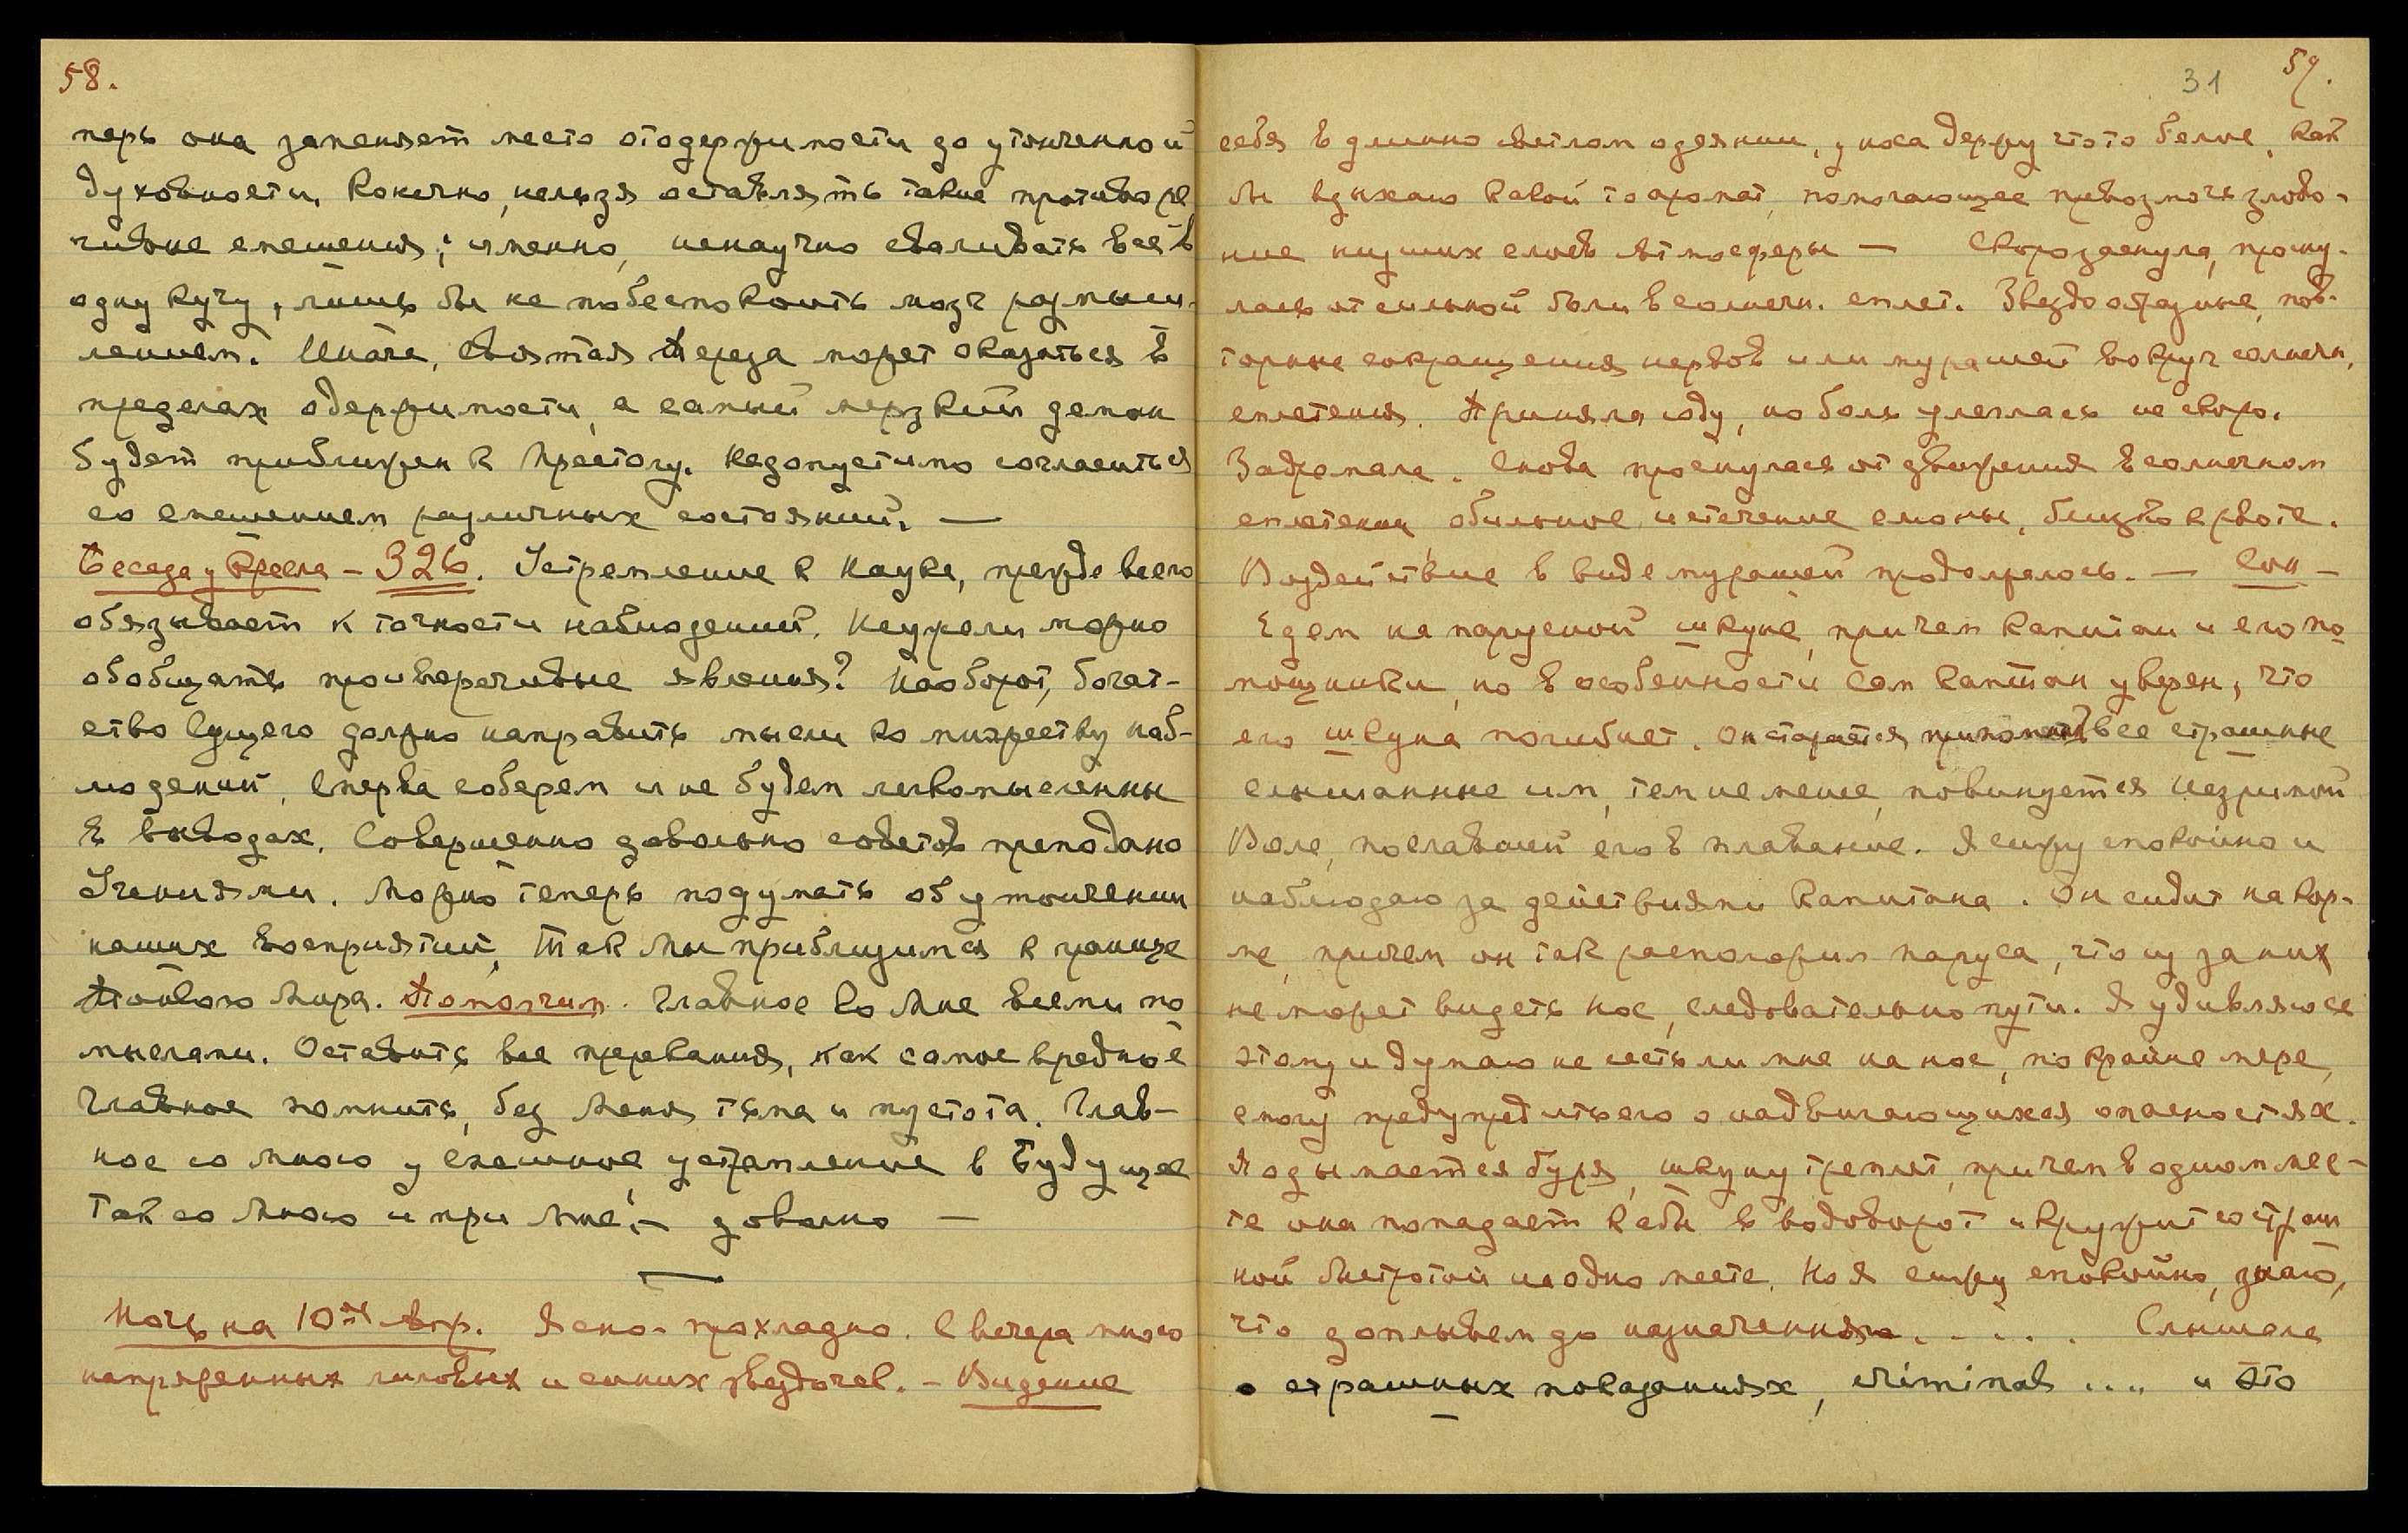 58.
перь она заменяет место от одержимости до утонченной
духовности. Конечно, нельзя оставлять такие противоре
чивые смешения; именно, ненаучно сваливать все в
одну кучу, лишь бы не побеспокоить мозг размыш-
лением. Иначе, Святая Тереза может оказаться в
пределах одержимости, а самый мерзкий демон
будет приближен к Престолу. Недопустимо согласиться
со смешением различных состояний. —
Беседа у Кресла – 326. Устремление к Науке, прежде всего
обязывает к точности наблюдений. Неужели можно
обобщать противоречивые явления? Наоборот, богат-
ство Сущего должно направить мысли ко множеству наб-
людений. Сперва соберем и не будем легкомысленны
в выводах. Совершенно довольно советов преподано
Учениями. Можно теперь подумать об утончении
наших восприятий. Так мы приблизимся к границе
Тонкого Мира. Помолчим. Главное Ко Мне всеми по
мыслами. Оставить все пререкания, как самое вредное
Главное помнить, без Меня тьма и пустота. Глав-
ное со Мною успешное устремление в Будущее
Так со Мною и при Мне. – довольно —
Ночь на 10ое Апр. Ясно – прохладно. С вечера много
напряженных лиловых и синих звездочек. – Видение
31 59.
себя в длинно светлом одеянии, у носа держу что то белое, как
бы вдыхаю какой то аромат, помогающее превозмочь злово-
ние низших слоев атмосферы — Скоро заснула, просну-
лась от сильной боли в солнечн. сплет. Звездообразные, пов-
торные сокращения нервов или мурашей вокруг солнечн.
сплетения. Приняла соду, но боль улеглась не скоро.
Задремала. Снова проснулась от движения в солнечном
сплетении, обильное истечение слюны, близко к рвоте.
Воздействие в виде мурашей продолжалось. — Сон –
Едем на парусной шкуне, причем капитан и его по
мощники, но в особенности сам капитан уверен, что
его шкуна погибнет. Он старается припомнить все страшные
слышанные им, тем не менее, повинуется Незримой
Воле, пославшей его в плавание. Я сижу спокойно и
наблюдаю за действиями капитана. Он сидит на кор-
ме, причем он так расположил паруса, что из за них
не может видеть нос, следовательно пути. Я удивляюсь
этому и думаю не сесть ли мне на нос, по крайне мере,
смогу предупредить его о надвигающихся опасностях.
Подымается буря, шкуну треплет, причем в одном мес-
те она попадает как бы в водоворот и кружит со страш
ной быстротой на одно месте. Но я сижу спокойно, знаю,
что доплывем до назначения . . . . . Слышала
о страшных показаниях, criminal .... и это